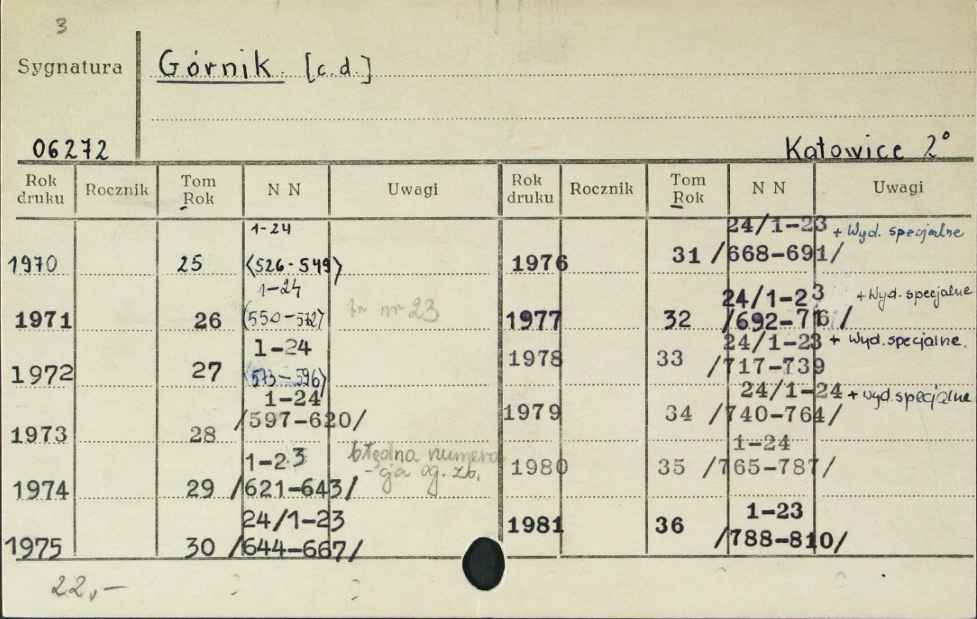 3
Sygnatura Górnik. [c.d.]
06272 Katowice 2°
Rok druku Rocznik Tom Rok N N Uwagi Rok druku Rocznik Tom Rok N N Uwagi
1-24
1970 25 (526-549)
1-24
1971 26 (550-572) nr 23
1-24
1972 27 (573-596)
1-24
1973 28 /597-620/
1-23 błędna numera-
1974 29 /621-643/ cja og. zb.
24/1-23
1975 30 /644-667/
24/1-23 + Wyd. specjalne
1976 31 /668-691/
24/1-23 + Wyd. specjalne
1977 32 /692-716/
24/1-23 + Wyd. specjalne.
1978 33 /717-739
24/1-24 + wyd. specjalne
1979 34 /740-764/
1-24
1980 35 /765-787/
1-23
1981 36 /788-810/
22,-